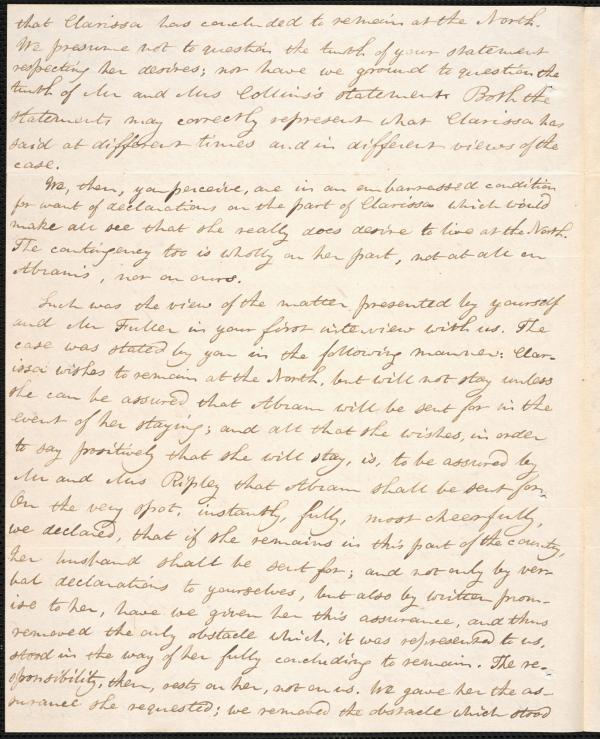 that Clarissa has concluded to remain at the North.
We presume not to question the truth of your statement
respecting her desires; nor have we ground to question the
truth of Mr and Mrs Collins's statement. Both the
statements may correctly represent what Clarissa has
said at different times and in different views of the
case.
We, then, you perceive, are in an embarrassed condition
for want of declarations on the part of Clarissa which would
make all see that she really does desire to live at the North.
The contingency too is wholly on her part, not at all on
Abram's, nor on ours.
Such was the view of the matter presented by yourself
and Mr Fuller in your first interview with us. The
case was stated by you in the following manner: Clar-
issa wishes to remain at the North, but will not stay unless
she can be assured that Abram will be sent for in the
event of her staying; and all that she wishes, in order
to say positively that she will stay, is, to be assured by
Mr and Mrs Ripley that Abram shall be sent for.
On the very spot, instantly, fully, most cheerfully,
we declared, that if she remains in this part of the country,
her husband shall be sent for; and not only by ver-
bal declarations to yourselves, but also by written prom-
ise to her, have we given her this assurance, and thus
removed the only obstacle which, it was represented to us,
stood in the way of her fully concluding to remain. The re-
sponsibility, then, rests on her, not on us. We gave her the as-
surance she requested; we removed the obstacle which stood